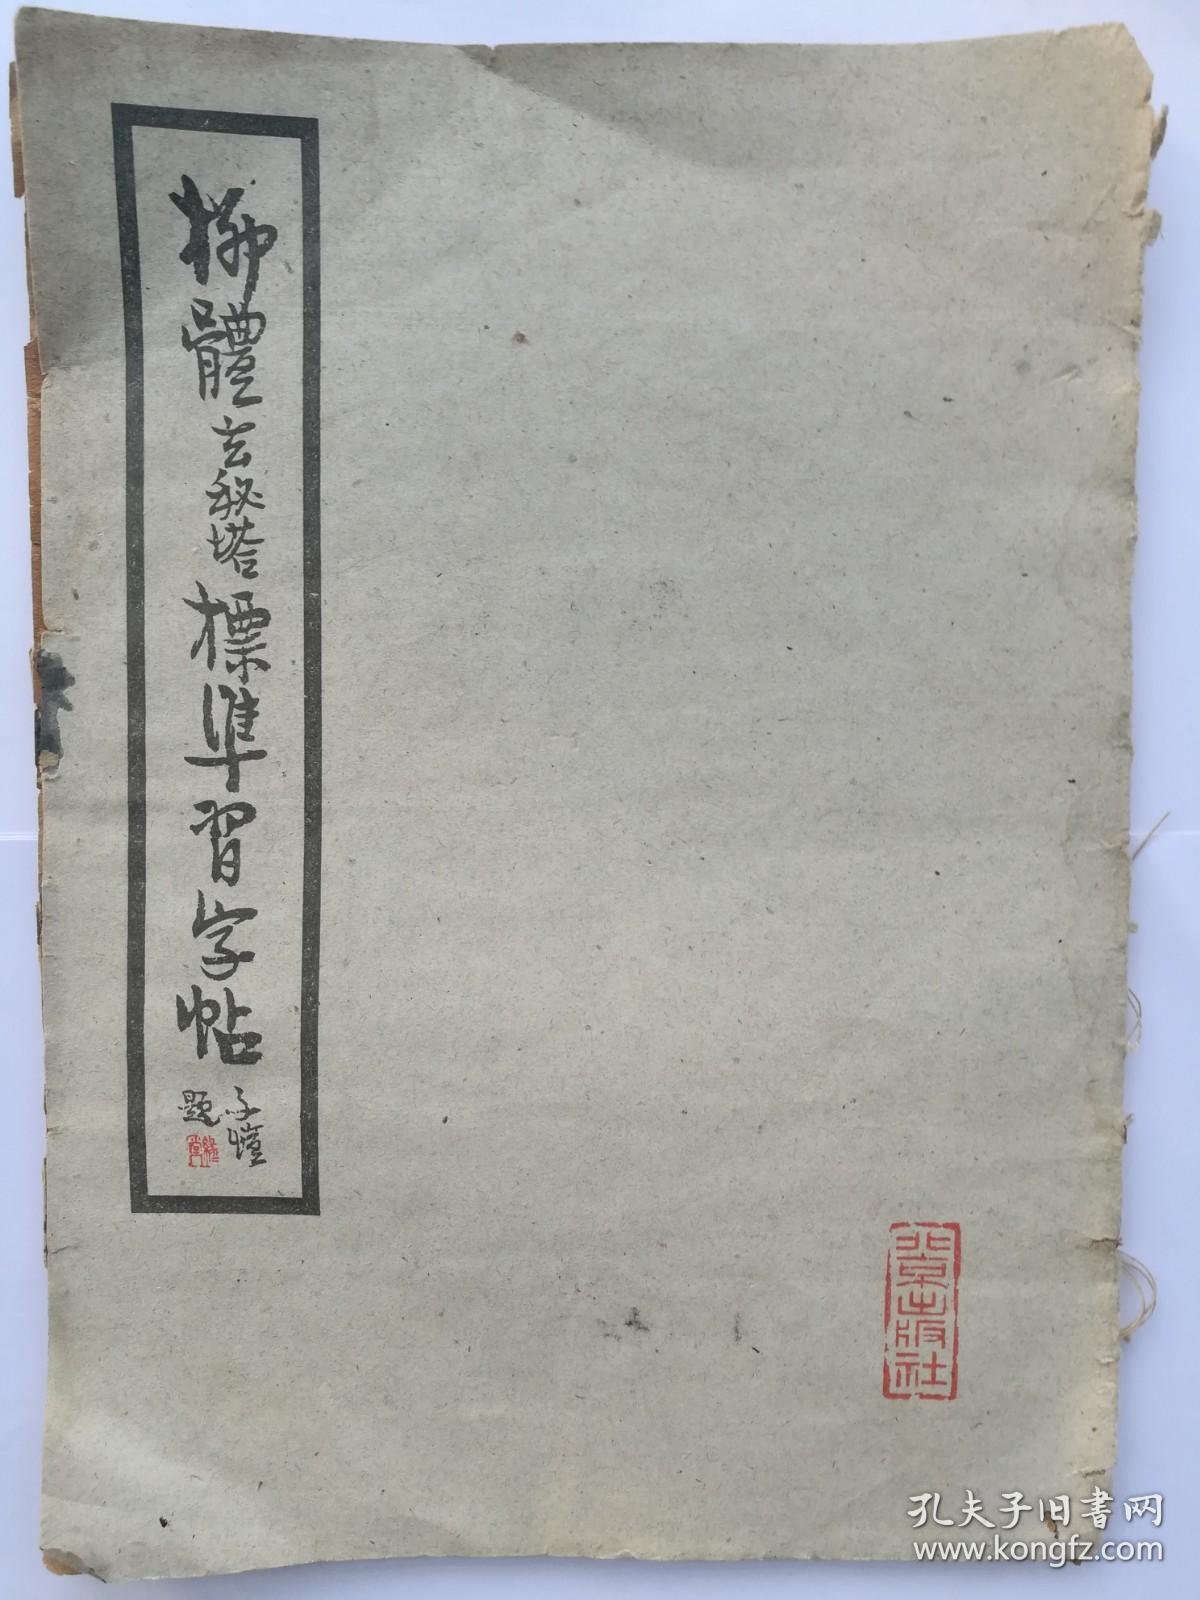 柳體玄秘塔標準習字帖
子愷
題
緣堂
北京出版社
孔夫子旧書网
www.kongfz.com